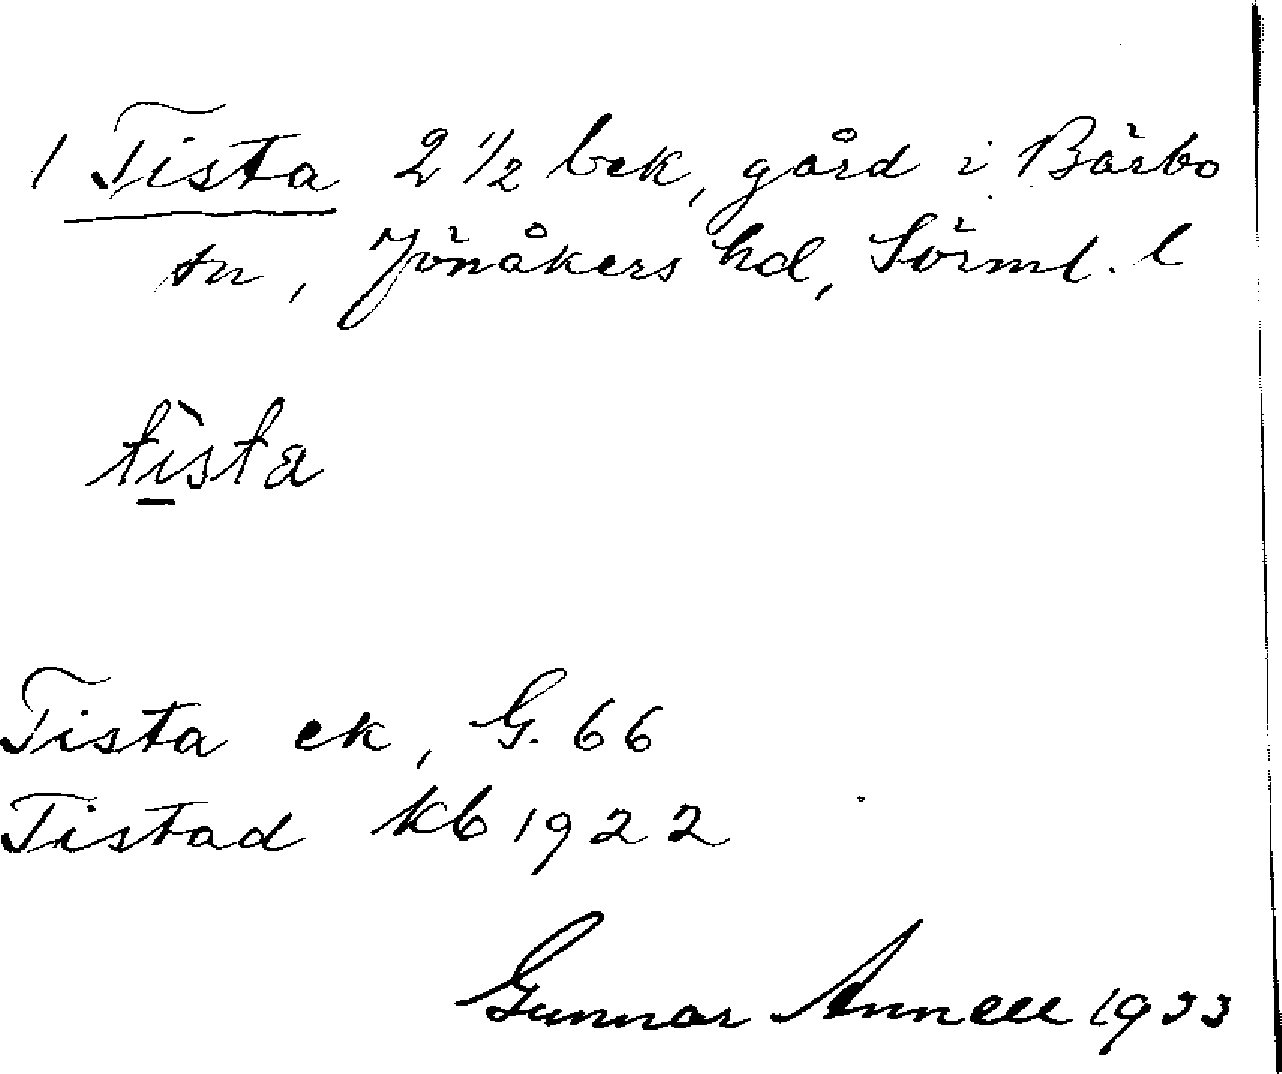 1 Tista 2 1/2 bek, gård i Bärbo
sn, Jönåkers hd, Sörml. l
tìsta
Tista ek, G. 66
Tistad kb 1922
Gunnar Annell 1933